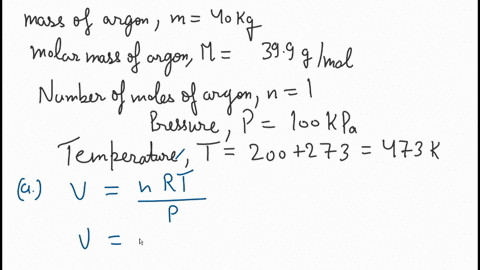 mass of argon, m = 40 Kg
molar mass of argon, M = 39.9 g/mol
Number of moles of argon, n = 1
Pressure, P = 100 KPa
Temperature, T = 200 + 273 = 473 K
(a.) V = nRT / P
V =